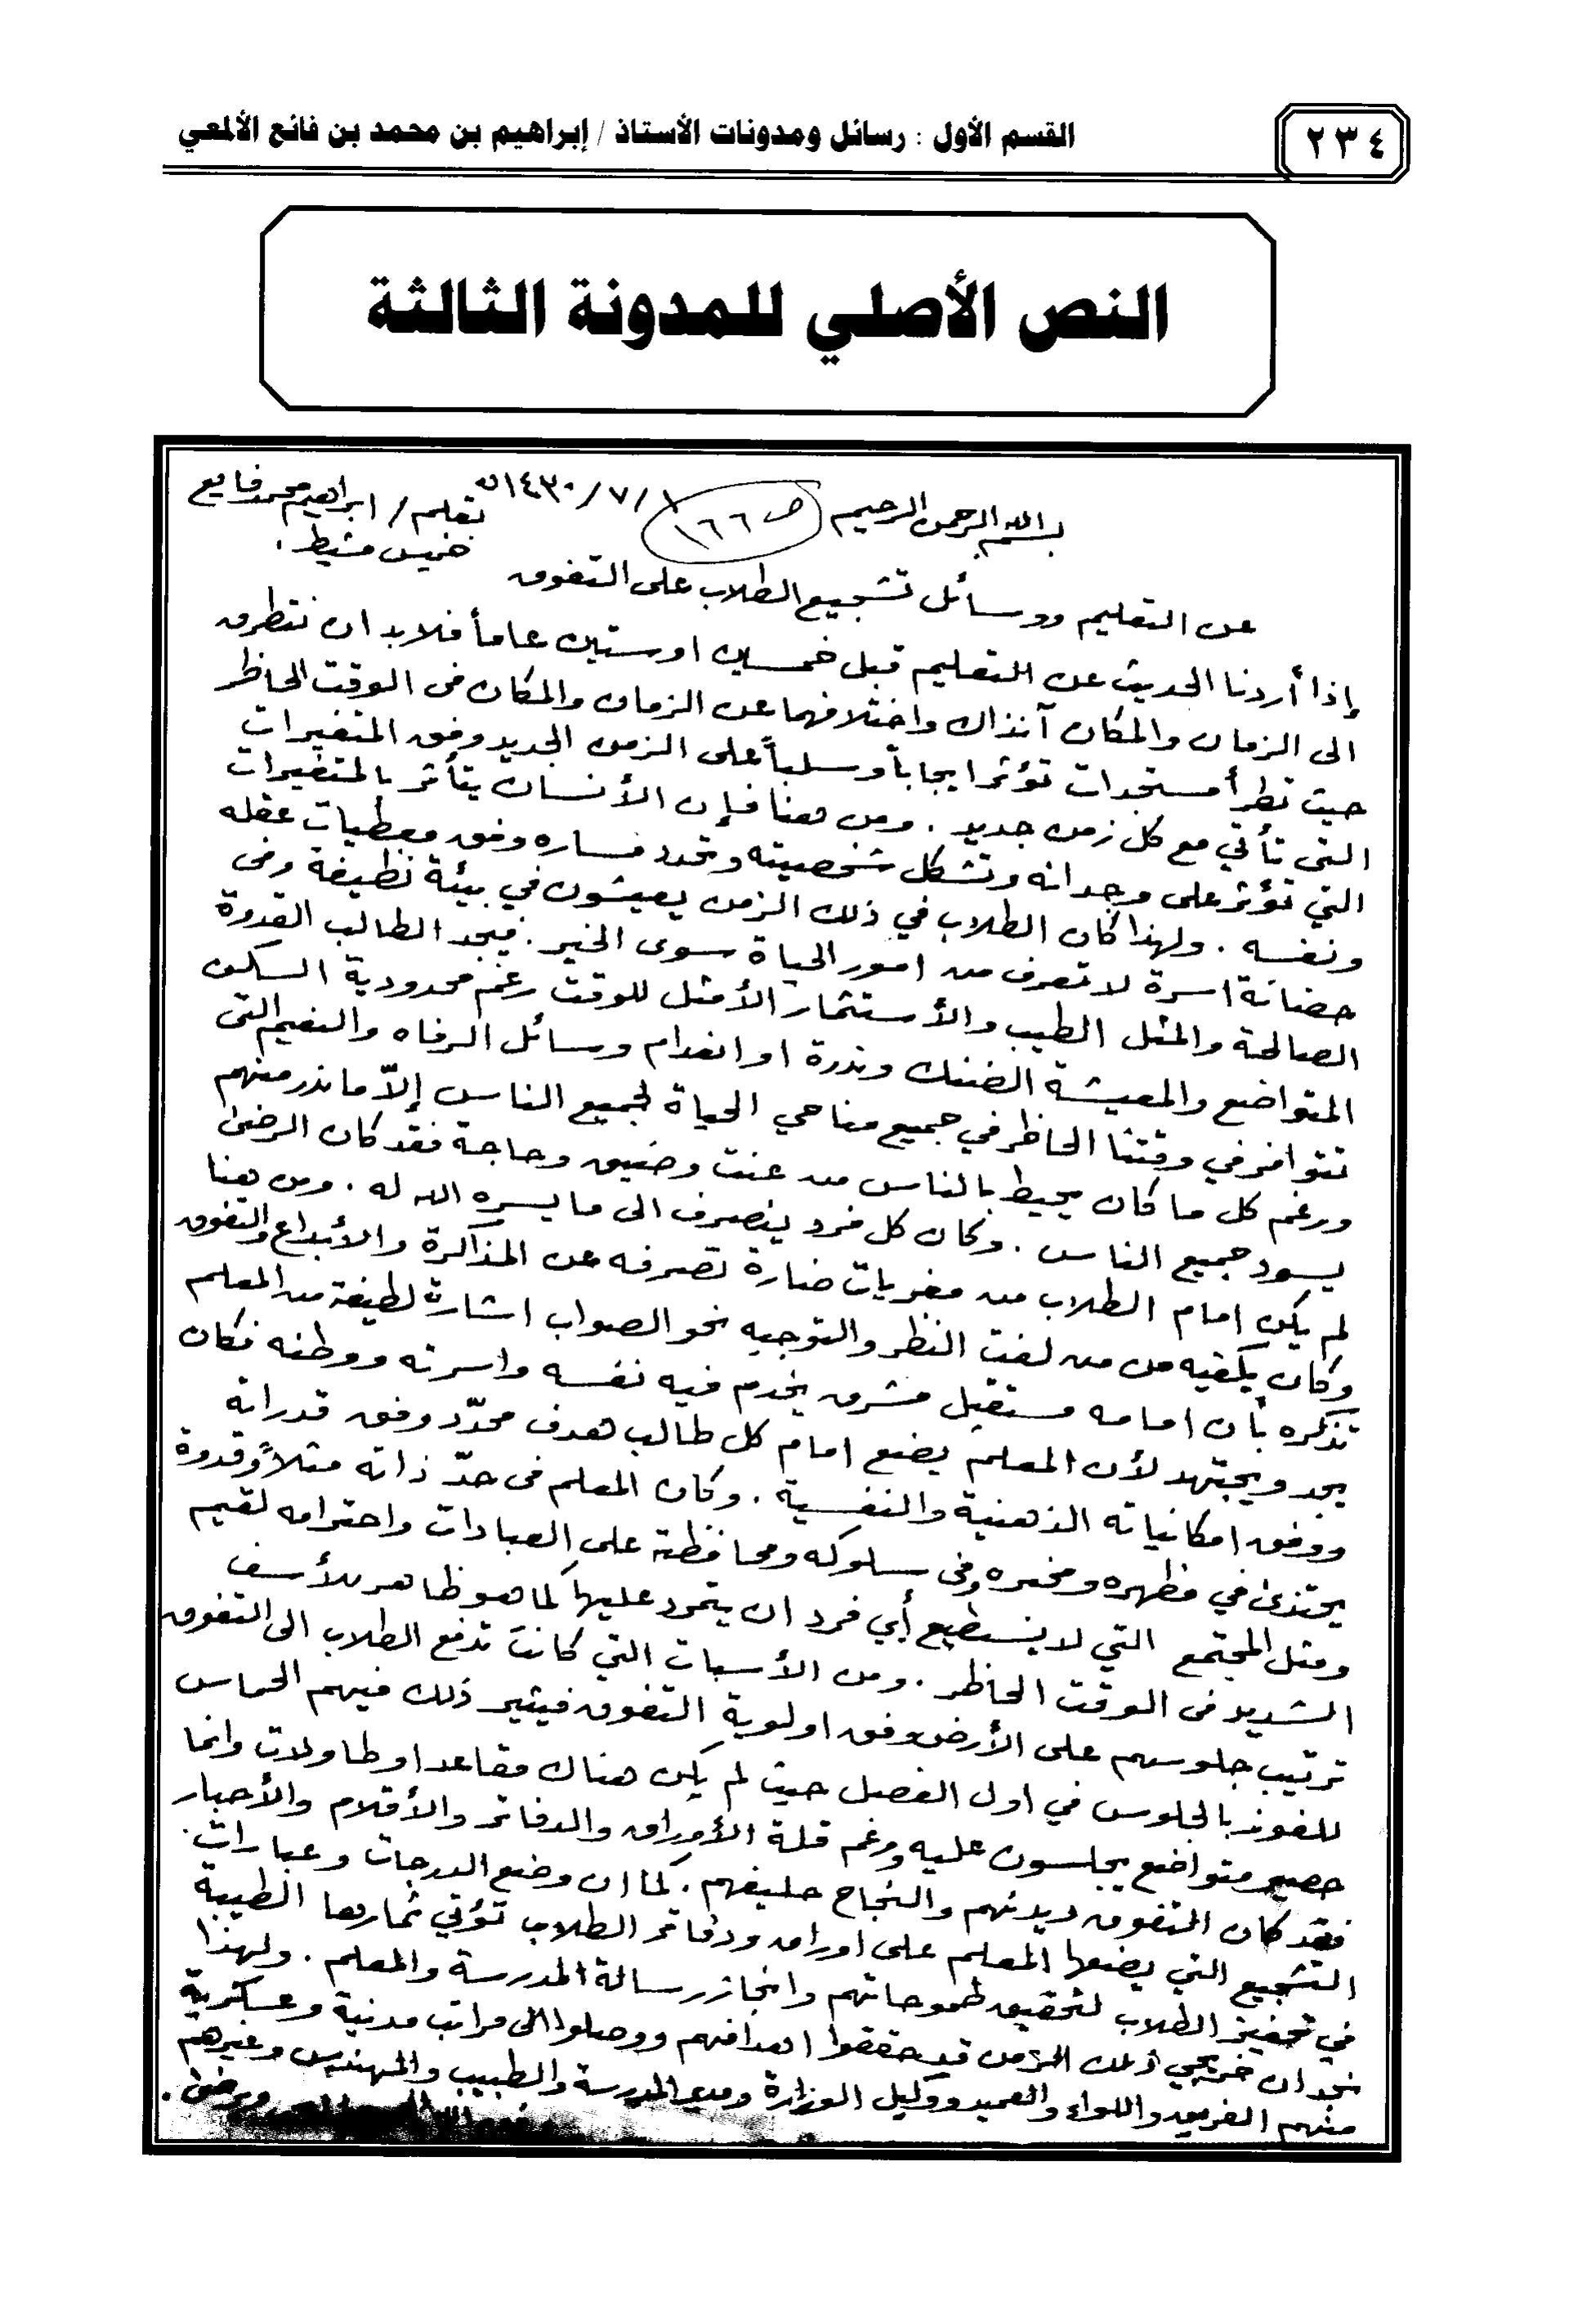 ٢٣٤
القسم الأول : رسائل ومدونات الأستاذ / إبراهيم بن محمد بن فائع الألمعي
النص الأصلي للمدونة الثالثة
بسم الله الرحمن الرحيم ص ١٦٦ ١ /٧ /١٤٣٠ه بقلم / ابراهيم محمد فايع
خميس مشيط .
عن التعليم ووسائل تشجيع الطلاب على التفوق
إذا أردنا الحديث عن التعليم قبل خمسين او ستين عاماً فلابد ان نتطرق
الى الزمان والمكان آنذاك واختلافهما عن الزمان والمكان فى الوقت الحاظر
حيث تطرأ مستجدات تؤثر ايجاباً وسلباً على الزمن الجديد وفق المتغيرات
التى تأتي مع كل زمن جديد . ومن هنا فإن الأنسان يتأثر بالمتغيرات
التي تؤثر على وجدانه وتشكل شخصيته وتحدد مساره وفق معطيات عقله
ونفسه . ولهذا كان الطلاب في ذلك الزمن يعيشون في بيئة نظيفة وفى
حضانة اسرة لا تعرف من امور الحياة سوى الخير . فيجد الطالب القدوة
الصالحة والمثل الطيب والأستثمار الأمثل للوقت رغم محدودية السكن
المتواضع والمعيشة الضنك وندرة او انعدام وسائل الرفاه والنعيم التى
تتوافر في وقتنا الحاظر في جميع مناحي الحياة لجميع الناس إلاّ ما ندر منهم
ورغم كل ما كان يحيط بالناس من عنت وضيق وحاجة فقد كان الرضى
يسود جميع الناس . وكان كل فرد ينصرف الى ما يسره الله له . ومن هنا
لم يكن امام الطلاب من مغريات ضارة تصرفه عن المذاكرة والأبداع والتفوق
وكان يكفيه من من لفت النظر والتوجيه نحو الصواب اشارة لطيفة من المعلم
تذكره بأن امامه مستقبل مشرق يخدم فيه نفسه واسرته ووطنه فكان
يجد ويجتهد لأن المعلم يضع امام كل طالب هدف محدّد وفق قدراته
ووفق امكانياته الذهنية والنفسية . وكان المعلم فى حدّ ذاته مثلاً وقدوة
يحتذى في مظهره ومخبره وفى سلوكه ومحافظته على العبادات واحترامه لقيم
ومثل المجتمع التي لا يستطيع أي فرد ان يتمرد عليها كما هو ظاهر للأسف
الشديد فى الوقت الحاظر . ومن الأسباب التي كانت تدفع الطلاب الى التفوق
ترتيب جلوسهم على الأرض وفق اولوية التفوق فيثير ذلك فيهم الحماس
للفوز بالجلوس في اول الفصل حيث لم يكن هناك مقاعد او طاولات وانما
حصير متواضع يجلسون عليه ورغم قلة الأوراق والدفاتر والأقلام والأحبار
فقد كان التفوق ديدنهم والنجاح حليفهم . كما ان وضع الدرجات وعبارات
التشجيع التي يضعها المعلم على اوراق ودفاتر الطلاب تؤتي ثمارها الطيبة
في تحفيز الطلاب لتحقيق طموحاتهم وانجاز رسالة المدرسة والمعلم . ولهذا
نجد ان خريجي ذلك الزمن قد حققوا اهدافهم ووصلوا الى مراتب مدنية وعسكرية
منهم الفريق واللواء والعميد ووكيل الوزارة ومدير المدرسة والطبيب والمهندس وغيرهم
ويرضى .